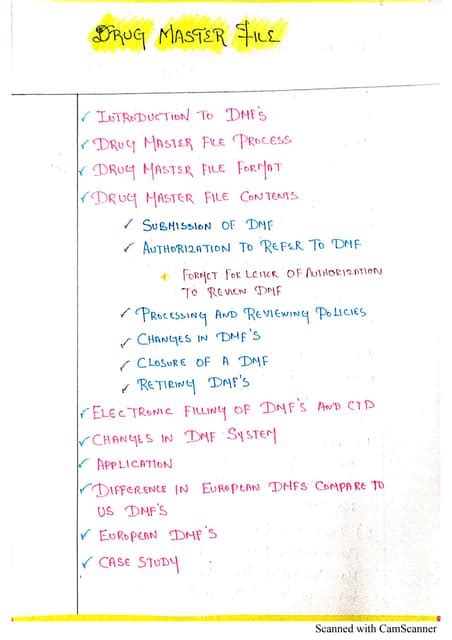 DRUG MASTER FILE
✓ INTRODUCTION TO DMF'S
✓ DRUG MASTER FILE PROCESS
✓ DRUG MASTER FILE FORMAT
✓ DRUG MASTER FILE CONTENTS
✓ SUBMISSION OF DMF
✓ AUTHORIZATION TO REFER TO DMF
+ FORMET FOR LETTER OF AUTHORIZATION
TO REVIEW DMF
✓ PROCESSING AND REVIEWING POLICIES
✓ CHANGES IN DMF'S
✓ CLOSURE OF A DMF
✓ RETIRING DMF'S
✓ ELECTRONIC FILLING OF DMF'S AND CTD
✓ CHANGES IN DMF SYSTEM
✓ APPLICATION
✓ DIFFERENCE IN EUROPEAN DMFS COMPARE TO
US DMF'S
✓ EUROPEAN DMF'S
✓ CASE STUDY
Scanned with CamScanner